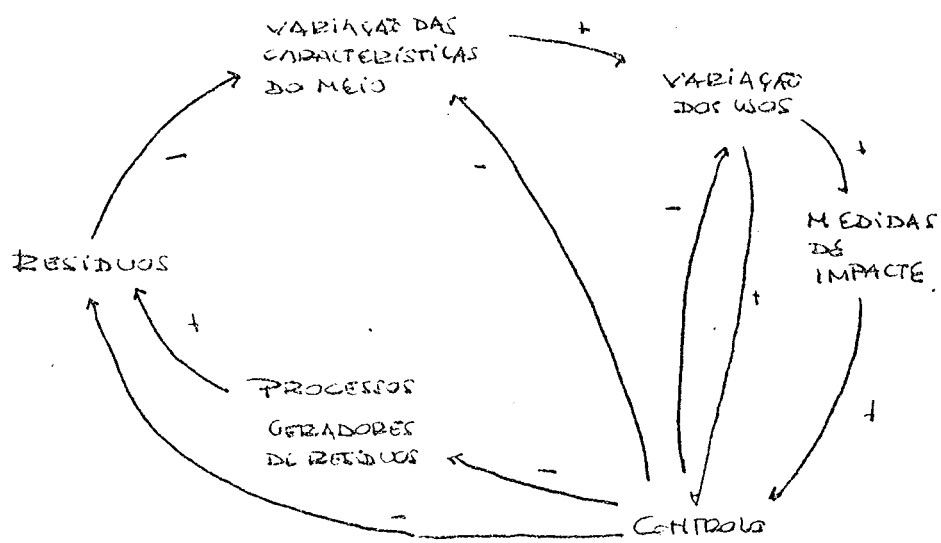 VARIAÇÃO DAS
CARACTERÍSTICAS
DO MEIO
+
VARIAÇÃO
DOS USOS
+
-
-
-
MEDIDAS
DE
IMPACTE.
RESÍDUOS
+
+
PROCESSOS
GERADORES
DE RESÍDUOS
+
-
-
CONTROLO